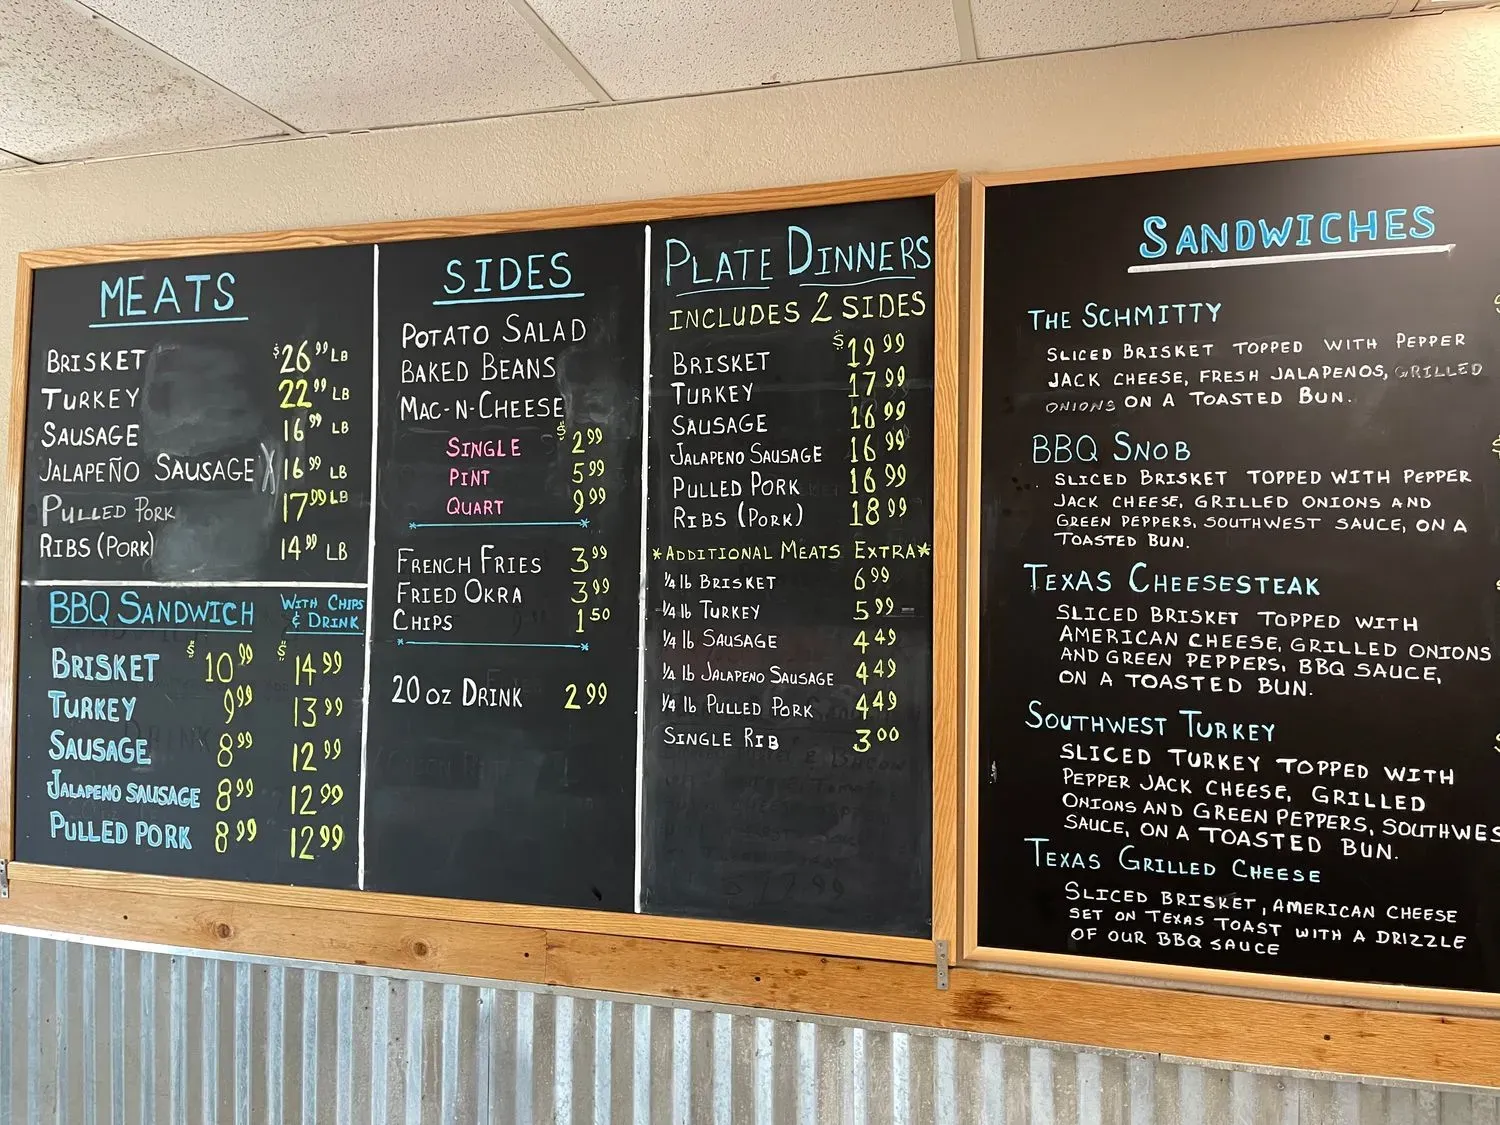 MEATS
BRISKET $26.99 LB
TURKEY 22.99 LB
SAUSAGE 16.99 LB
JALAPEÑO SAUSAGE 16.99 LB
PULLED PORK 17.99 LB
RIBS (PORK) 14.99 LB
BBQ SANDWICH WITH CHIPS & DRINK
BRISKET $10.99 $14.99
TURKEY 9.99 13.99
SAUSAGE 8.99 12.99
JALAPENO SAUSAGE 8.99 12.99
PULLED PORK 8.99 12.99
SIDES
POTATO SALAD
BAKED BEANS
MAC-N-CHEESE
SINGLE $2.99
PINT 5.99
QUART 9.99
FRENCH FRIES 3.99
FRIED OKRA 3.99
CHIPS 1.50
20 OZ DRINK 2.99
PLATE DINNERS
INCLUDES 2 SIDES
BRISKET $19.99
TURKEY 17.99
SAUSAGE 16.99
JALAPENO SAUSAGE 16.99
PULLED PORK 16.99
RIBS (PORK) 18.99
*ADDITIONAL MEATS EXTRA*
1/4 lb BRISKET 6.99
1/4 lb TURKEY 5.99
1/4 lb SAUSAGE 4.49
1/4 lb JALAPENO SAUSAGE 4.49
1/4 lb PULLED PORK 4.49
SINGLE RIB 3.00
SANDWICHES
THE SCHMITTY
SLICED BRISKET TOPPED WITH PEPPER
JACK CHEESE, FRESH JALAPENOS, GRILLED
ONIONS ON A TOASTED BUN.
BBQ SNOB
SLICED BRISKET TOPPED WITH PEPPER
JACK CHEESE, GRILLED ONIONS AND
GREEN PEPPERS, SOUTHWEST SAUCE, ON A
TOASTED BUN.
TEXAS CHEESESTEAK
SLICED BRISKET TOPPED WITH
AMERICAN CHEESE, GRILLED ONIONS
AND GREEN PEPPERS, BBQ SAUCE,
ON A TOASTED BUN.
SOUTHWEST TURKEY
SLICED TURKEY TOPPED WITH
PEPPER JACK CHEESE, GRILLED
ONIONS AND GREEN PEPPERS, SOUTHWES
SAUCE, ON A TOASTED BUN.
TEXAS GRILLED CHEESE
SLICED BRISKET, AMERICAN CHEESE
SET ON TEXAS TOAST WITH A DRIZZLE
OF OUR BBQ SAUCE